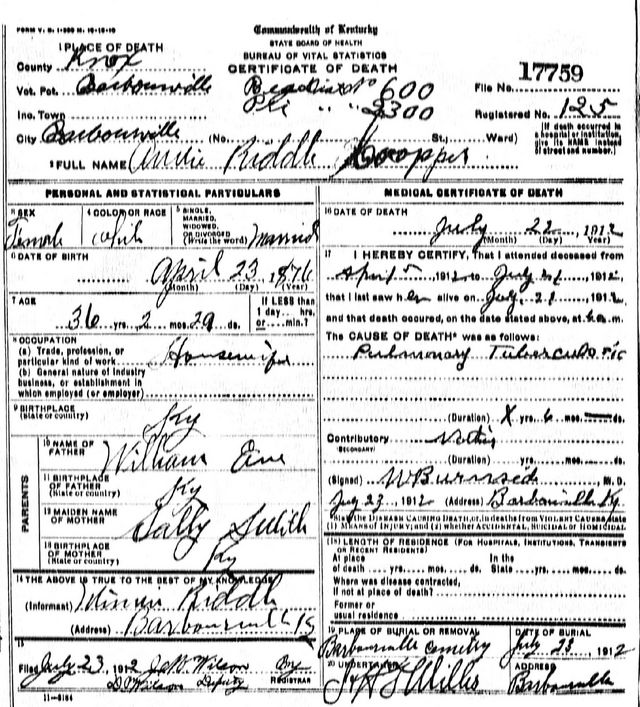 FORM V. S. 1-300 M. 10-10-10
Commonwealth of Kentucky
STATE BOARD OF HEALTH
BUREAU OF VITAL STATISTICS
CERTIFICATE OF DEATH
1 PLACE OF DEATH
County Knox
Vot. Pct. Barbourville
600
2300
File No. 17759
Inc. Town
Registered No. 125
City Barbourville (No. St.; Ward)
[If death occurred in
a hospital or institution,
give its NAME instead
of street and number.]
2 FULL NAME Riddle
PERSONAL AND STATISTICAL PARTICULARS
3 SEX
Female
4 COLOR OR RACE
white
5 SINGLE,
MARRIED,
WIDOWED,
OR DIVORCED
(Write the word) Married
6 DATE OF BIRTH
April 23 1876
(Month) (Day) (Year)
7 AGE
36 yrs. 2 mos. 29 ds.
If LESS than
1 day... hrs.
or... min.?
8 OCCUPATION
(a) Trade, profession, or
particular kind of work Housewife
(b) General nature of industry
business, or establishment in
which employed (or employer)
9 BIRTHPLACE
(State or country) Ky
PARENTS
10 NAME OF
FATHER William
11 BIRTHPLACE
OF FATHER
(State or country) Ky
12 MAIDEN NAME
OF MOTHER Sally
13 BIRTHPLACE
OF MOTHER
(State or country) Ky
14 THE ABOVE IS TRUE TO THE BEST OF MY KNOWLEDGE
(Informant) Minnie Riddle
(Address) Barbourville Ky
15
Filed July 23, 1912 Wilson
Wilson Deputy REGISTRAR
11-3184
MEDICAL CERTIFICATE OF DEATH
16 DATE OF DEATH
July 22, 1912
(Month) (Day) (Year)
17 I HEREBY CERTIFY, That I attended deceased from
April 5 1912 to July 21 1912
that I last saw her alive on July 21 1912
and that death occured, on the date stated above, at m.
The CAUSE OF DEATH* was as follows:
Pulmonary Tuberculosis
(Duration) X yrs. 6 mos. ds.
Contributory
(SECONDARY)
(Duration) yrs. mos. ds.
(Signed) M. D.
July 23, 1912 (Address) Barbourville Ky.
*State the DISEASE CAUSING DEATH, or, in deaths from VIOLENT CAUSES, state
(1) MEANS OF INJURY; and (2) whether ACCIDENTAL, SUICIDAL or HOMICIDAL
18 LENGTH OF RESIDENCE (FOR HOSPITALS, INSTITUTIONS, TRANSIENTS
OR RECENT RESIDENTS)
At place In the
of death ... yrs. ... mos. ... ds. State ... yrs. ... mos. ... ds.
Where was disease contracted,
If not at place of death?
Former or
usual residence
19 PLACE OF BURIAL OR REMOVAL
Barbourville Cemetery
DATE OF BURIAL
July 23, 1912
20 UNDERTAKER
ADDRESS
Barbourville